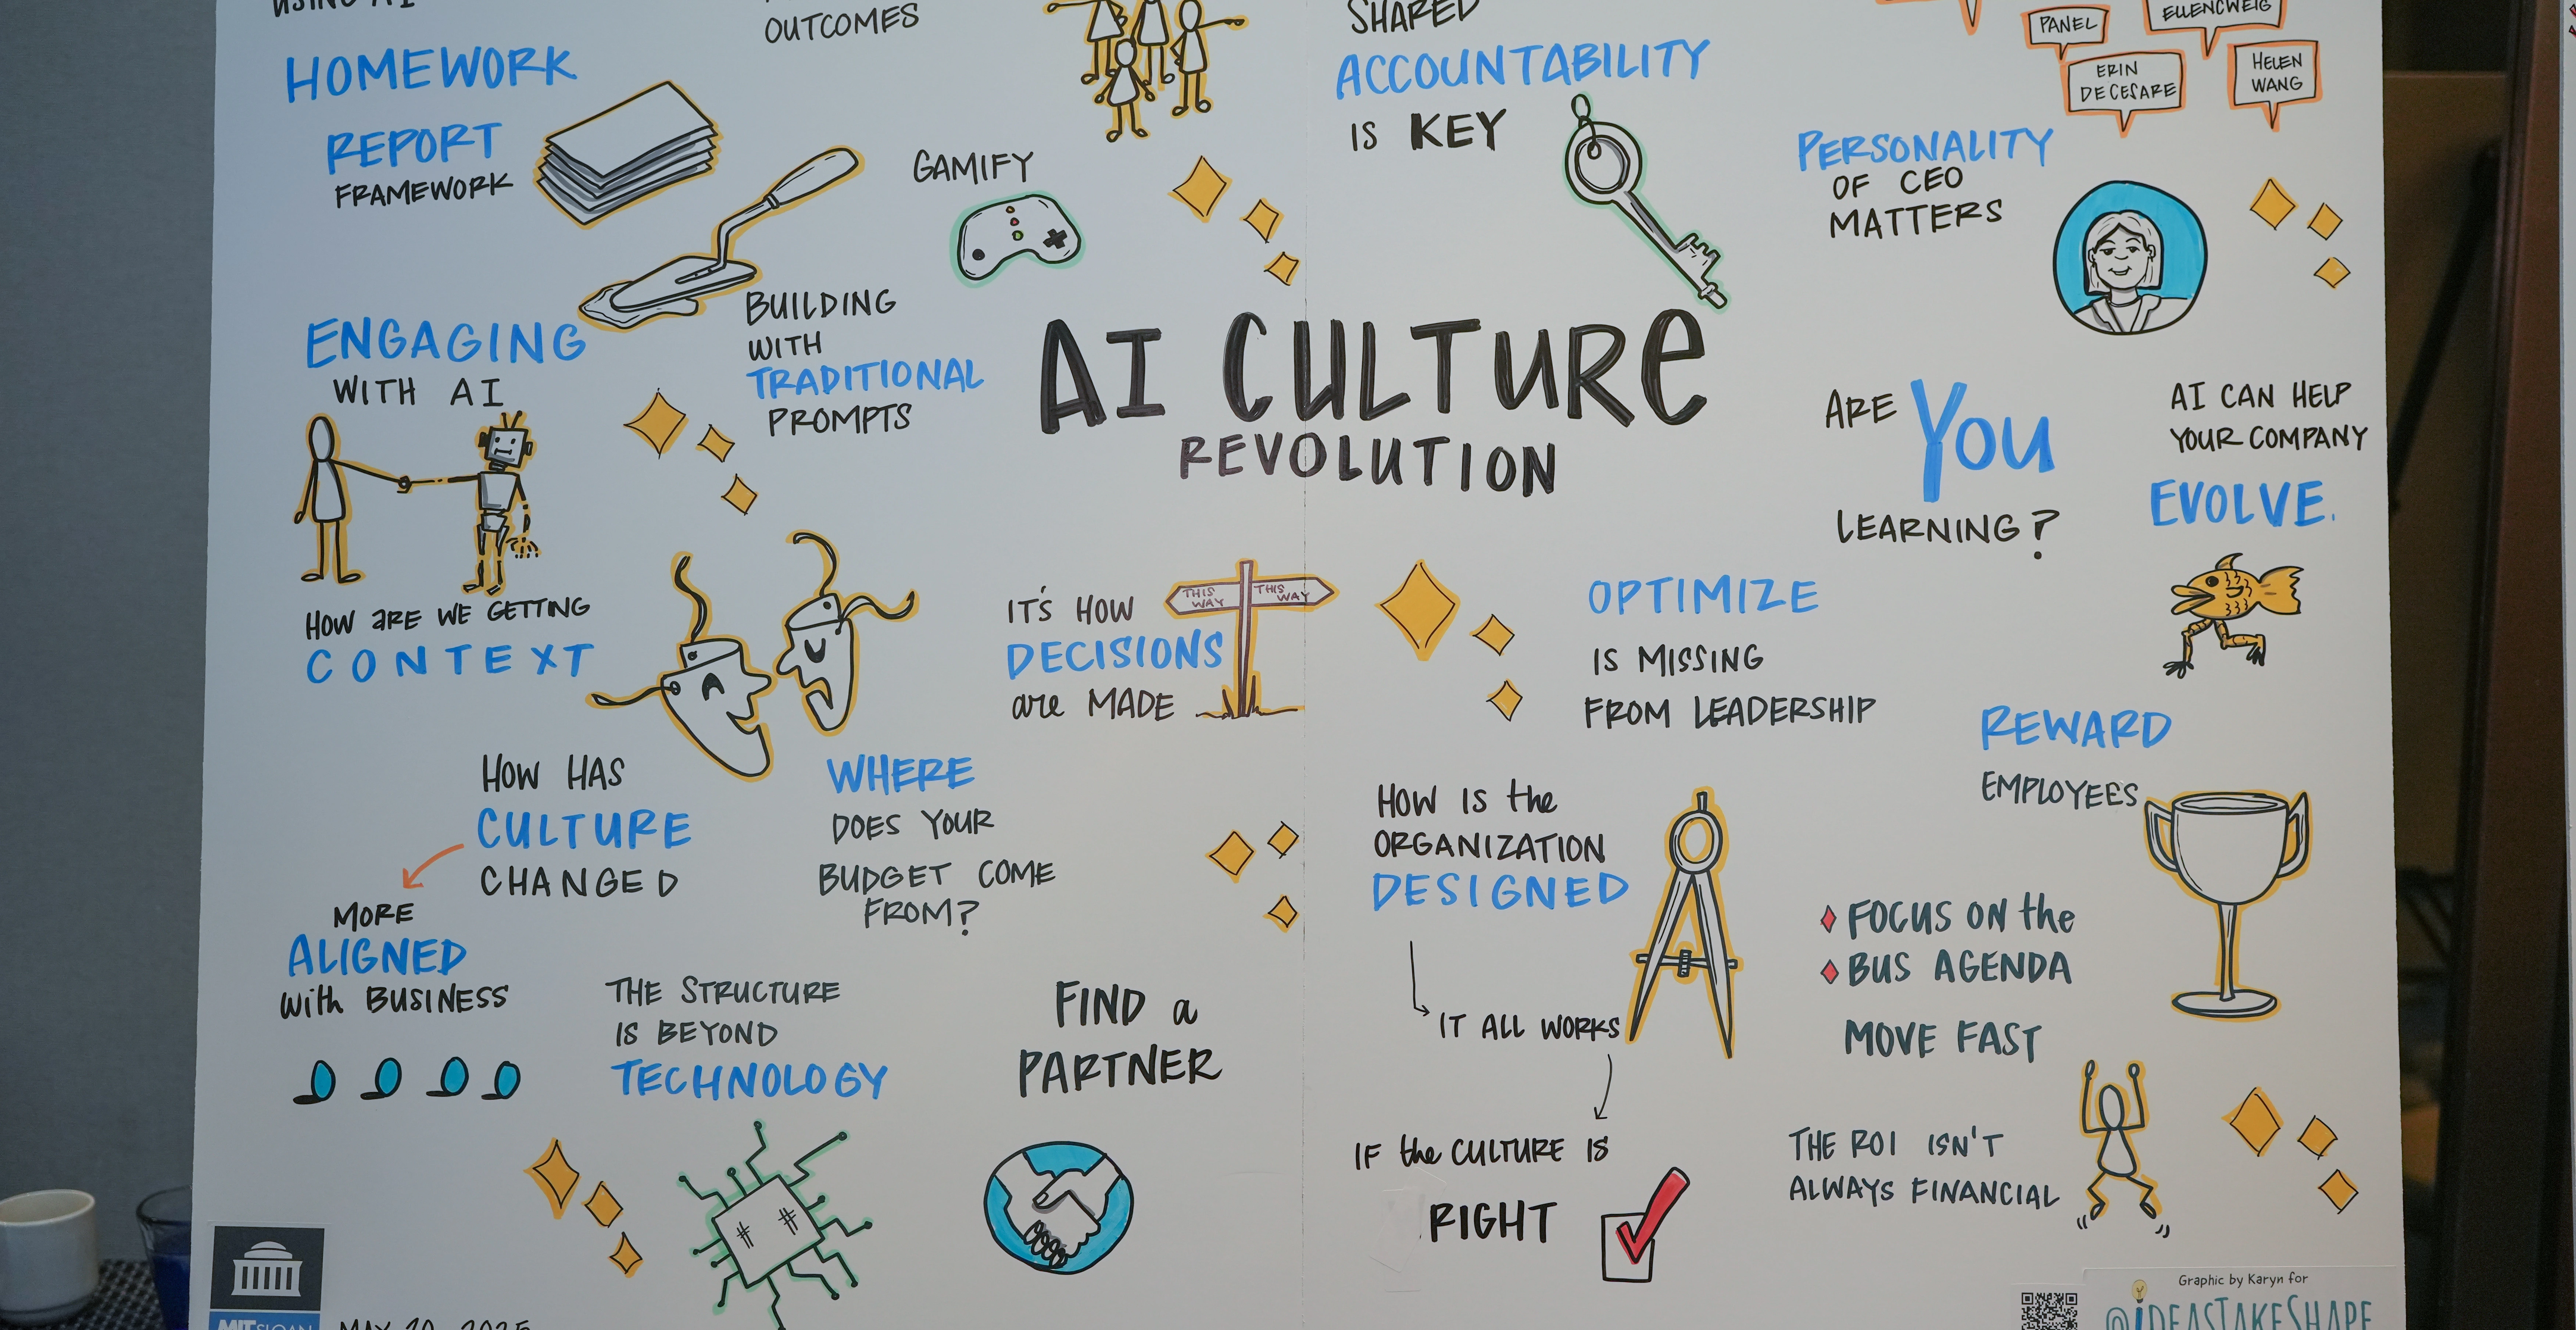 USING AI
HOMEWORK
REPORT
FRAMEWORK
OUTCOMES
GAMIFY
BUILDING
WITH
TRADITIONAL
PROMPTS
ENGAGING
WITH AI
HOW ARE WE GETTING
CONTEXT
SHARED
ACCOUNTABILITY
IS KEY
PANEL
ELLENCWEIG
ERIN
DECESARE
HELEN
WANG
PERSONALITY
OF CEO
MATTERS
AI CULTURE
REVOLUTION
ARE YOU
LEARNING?
AI CAN HELP
YOUR COMPANY
EVOLVE.
IT'S HOW
DECISIONS
are MADE
THIS
WAY
THIS
WAY
OPTIMIZE
IS MISSING
FROM LEADERSHIP
REWARD
EMPLOYEES
HOW HAS
CULTURE
CHANGED
MORE
ALIGNED
with BUSINESS
WHERE
DOES YOUR
BUDGET COME
FROM?
THE STRUCTURE
IS BEYOND
TECHNOLOGY
FIND a
PARTNER
HOW IS the
ORGANIZATION
DESIGNED
IT ALL WORKS
IF the CULTURE IS
RIGHT
FOCUS ON the
BUS AGENDA
MOVE FAST
THE ROI ISN'T
ALWAYS FINANCIAL
MIT SLOAN
MAY 20, 2025
Graphic by Karyn for
@IDEASTAKESHAPE